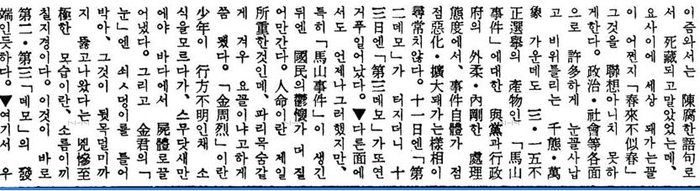 이즘와서는 陳腐한語句로
서、死藏되고말았었는데、
요사이에 세상 돼가는꼴
이 어쩐지「春來不似春」
그것을 聯想아니치 못하
게한다。政治・社會等各面
으로 許多하게 눈꼴사납
고 비위틀리는 千態・萬
象 가운데도 三・一五不
正選擧의 産物인 「馬山
事件」에대한 與黨과行政
府의 外柔・內剛한 處理
態度에서、事件自體가 점
점惡化・擴大돼가는樣相이
尋常치않다。十一日엔「第
二데모」가 터지더니 十
三日엔「第三데모」가또연
거푸일어났다。▼다른面에
서도 언제나그러했지만、
特히「馬山事件」이 생긴
뒤엔 國民의鬱懷가 더짙
어만간다。人命이란 제일
所重한것인데、파리목숨같
게 겨우 요꼴이냐고하게
쯤 됐다。「金周烈」이란
少年이 行方不明인채 소
식을모르다가、스무닷새만
에야 바다에서 屍體로끌
어냈다。그리고 金君의「
눈」엔 쇠ㅅ덩이를 틀어
박아、그것이 뒷목덜미까
지 뚫고나왔다는 兇慘至
極한 모습이란、소름이끼
칠지경이다。이것이 바로
第二・第三「데모」의 發
端인듯하다。▼여기서 우